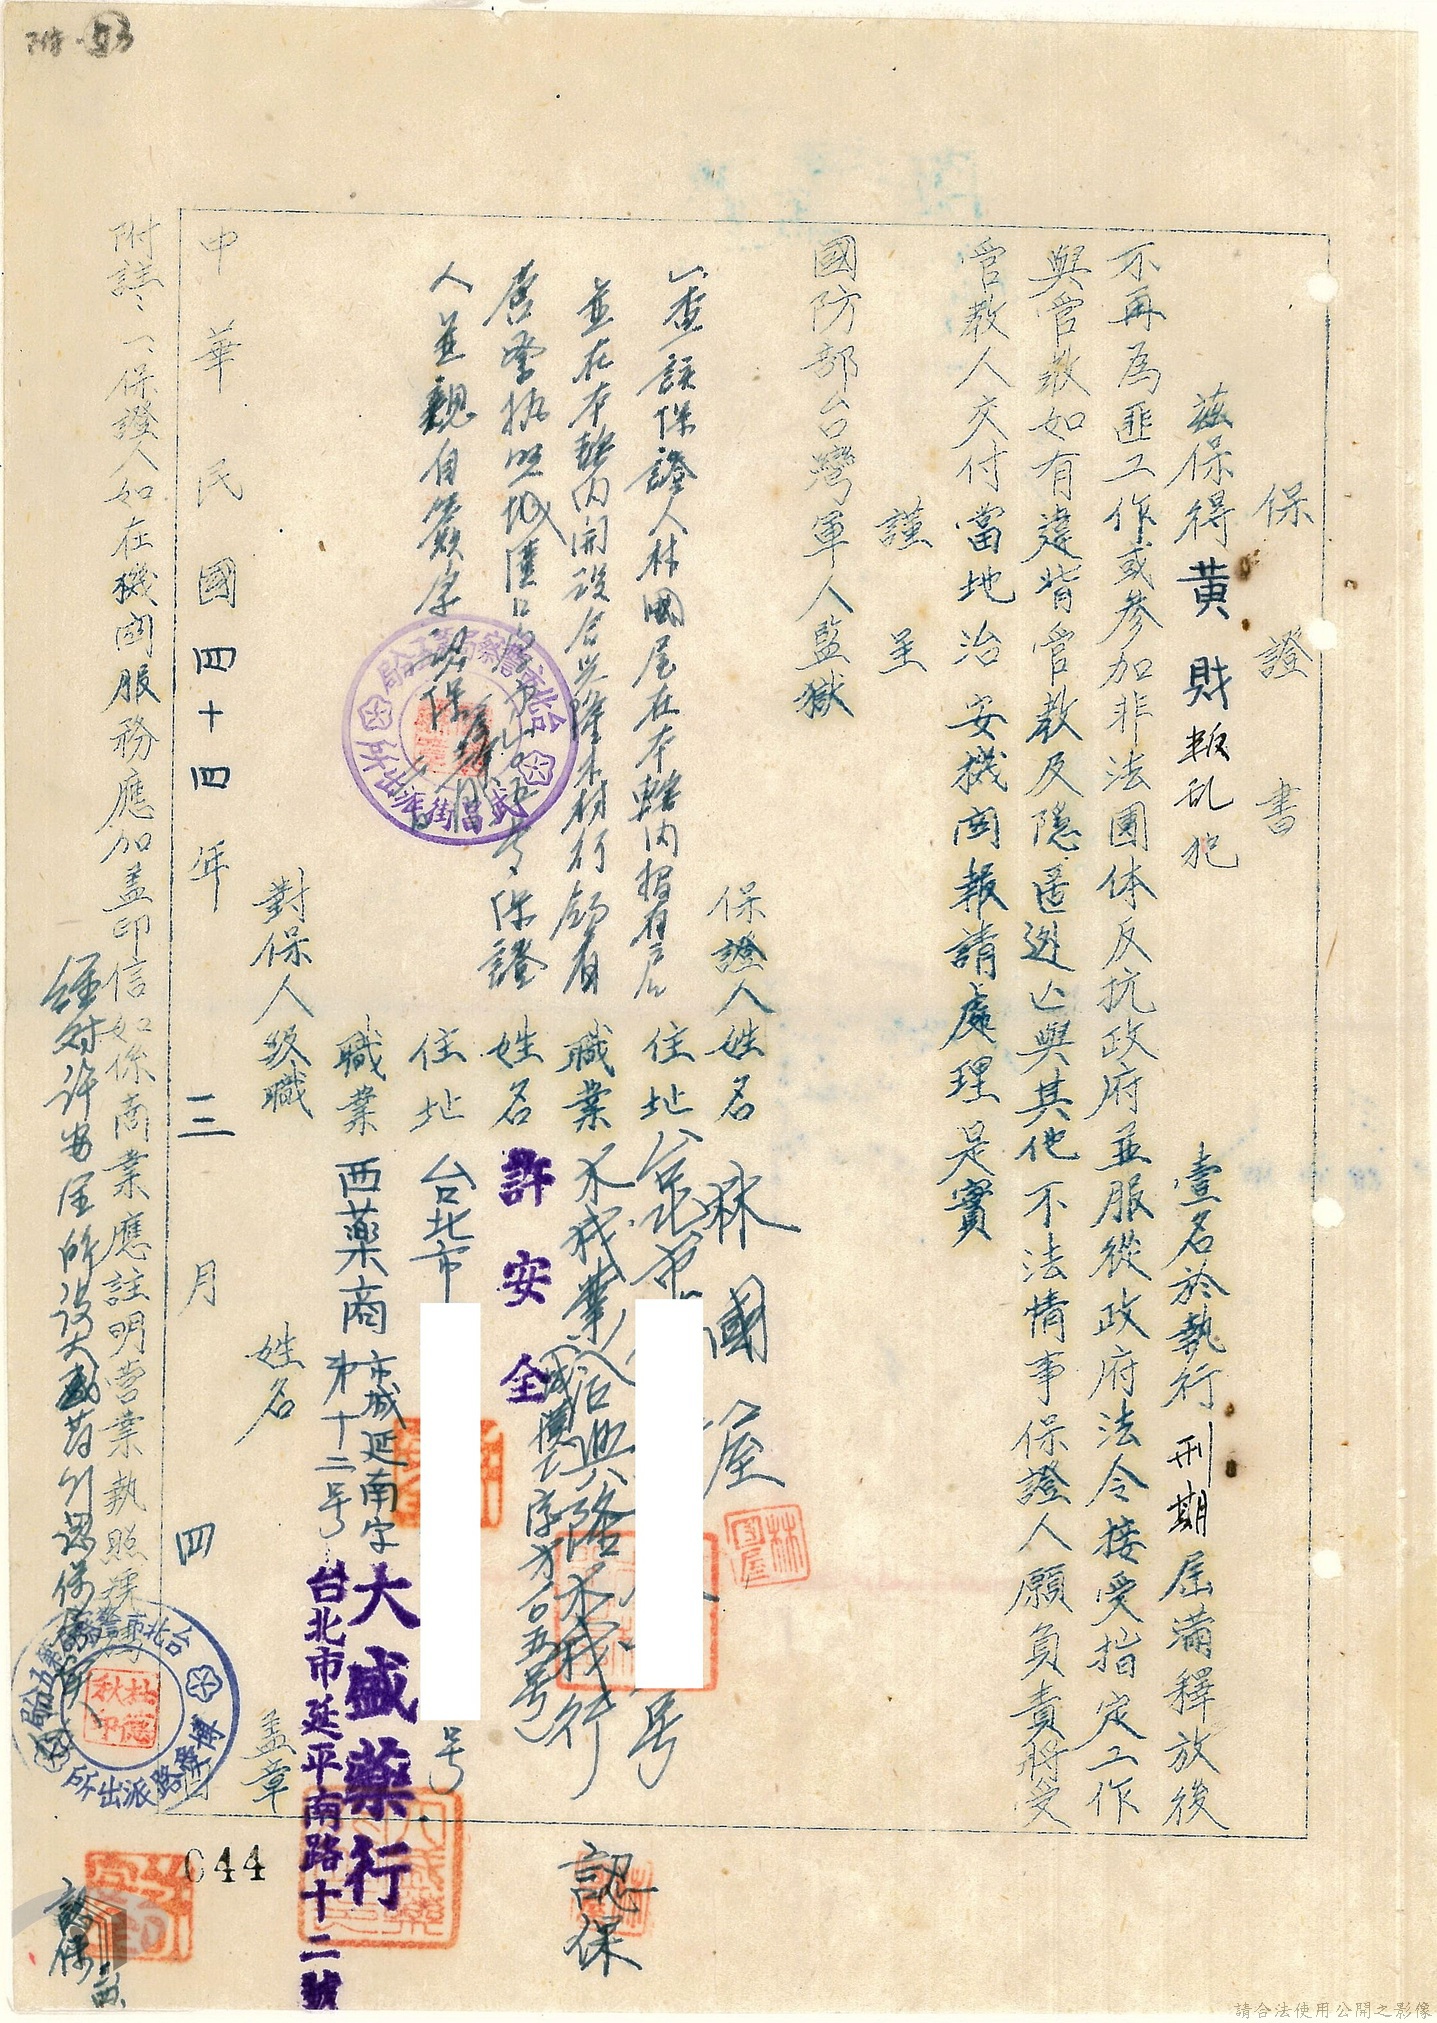 附-53
保證書
茲保得黃財叛乱犯 壹名於執行刑期屆滿釋放後
不再為匪工作或參加非法團体反抗政府並服從政府法令接受指定工作
與管教如有違背管教及隱匿逃亡與其他不法情事保證人願負責將受
管教人交付當地治安機関報請處理是實
謹呈
國防部台灣軍人監獄
保證人姓名 林國屋
住址 台北市 号 認保
職業 木材業(合興隆木材行
姓名 許安全
住址 台北市 号
職業 西藥商 市城延南字第十二号
大盛藥行
台北市延平南路十二號
查該保證人林國屋在本轄內
並在本轄內開設合興隆木材行領有
營業执照城 保證
人並親自簽字認保
台北市警察局 武昌街派出所
對保人級職 姓名 蓋章
中華民國四十四年三月四
附註:一、保證人如在機関服務應加蓋印信如係商業應註明營業執照
經对許安全所設大盛药行認保
台北市警 博愛路派出所
林國屋
杜德秋印
認保
044
請合法使用公開之影像